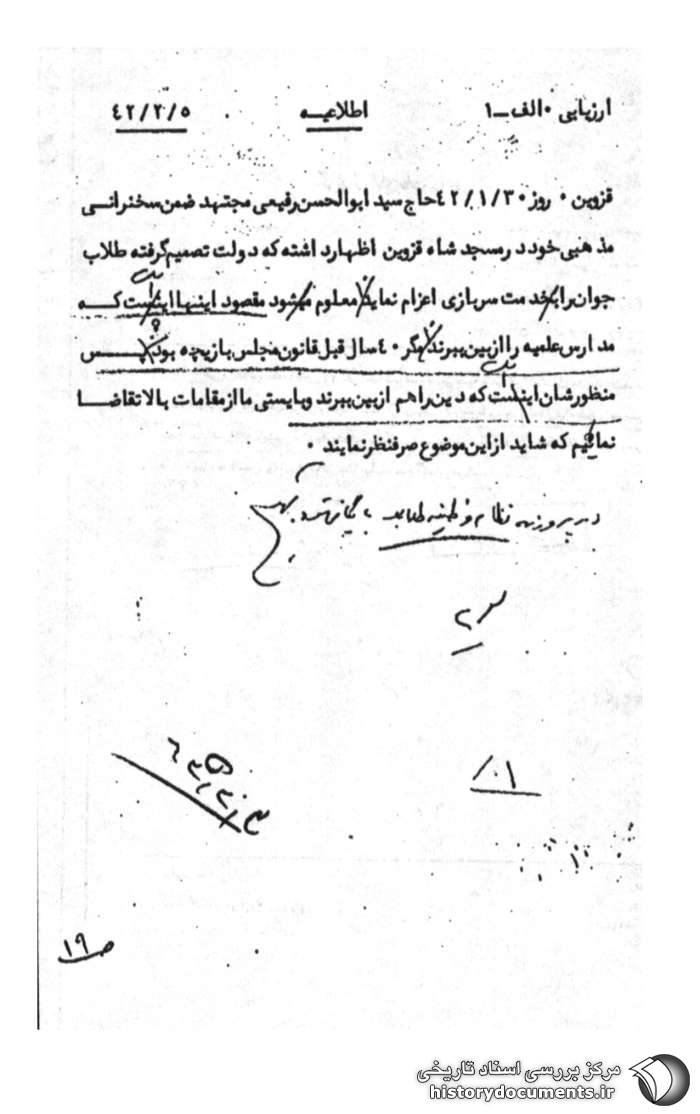 ارزیابی ۰ الف ـ ۱
اطلاعیــه
۴۲/۲/۵
قزوین ۰ روز ۴۲/۱/۳۰ حاج سید ابوالحسن رفیعی مجتهد ضمن سخنرانـی
مذهبی خود در مسجد شاه قزوین اظهار داشته که دولت تصمیم گرفته طلاب
جوان را بخدمت سربازی اعزام نماید معلوم میشود مقصود اینها اینست کــه
مدارس علمیه را از بین ببرند مگر ۴۰ سال قبل قانون مجلس بازیچه بود پــس
منظورشان اینست که دین را هم از بین ببرند و بایستی ما از مقامات بالا تقاضـا
نمائیم که شاید از این موضوع صرفنظر نمایند ۰
نظام وظیفه طلاب
۸۰۱
۱
ص ۱۹
مرکز بررسی اسناد تاریخی
historydocuments.ir